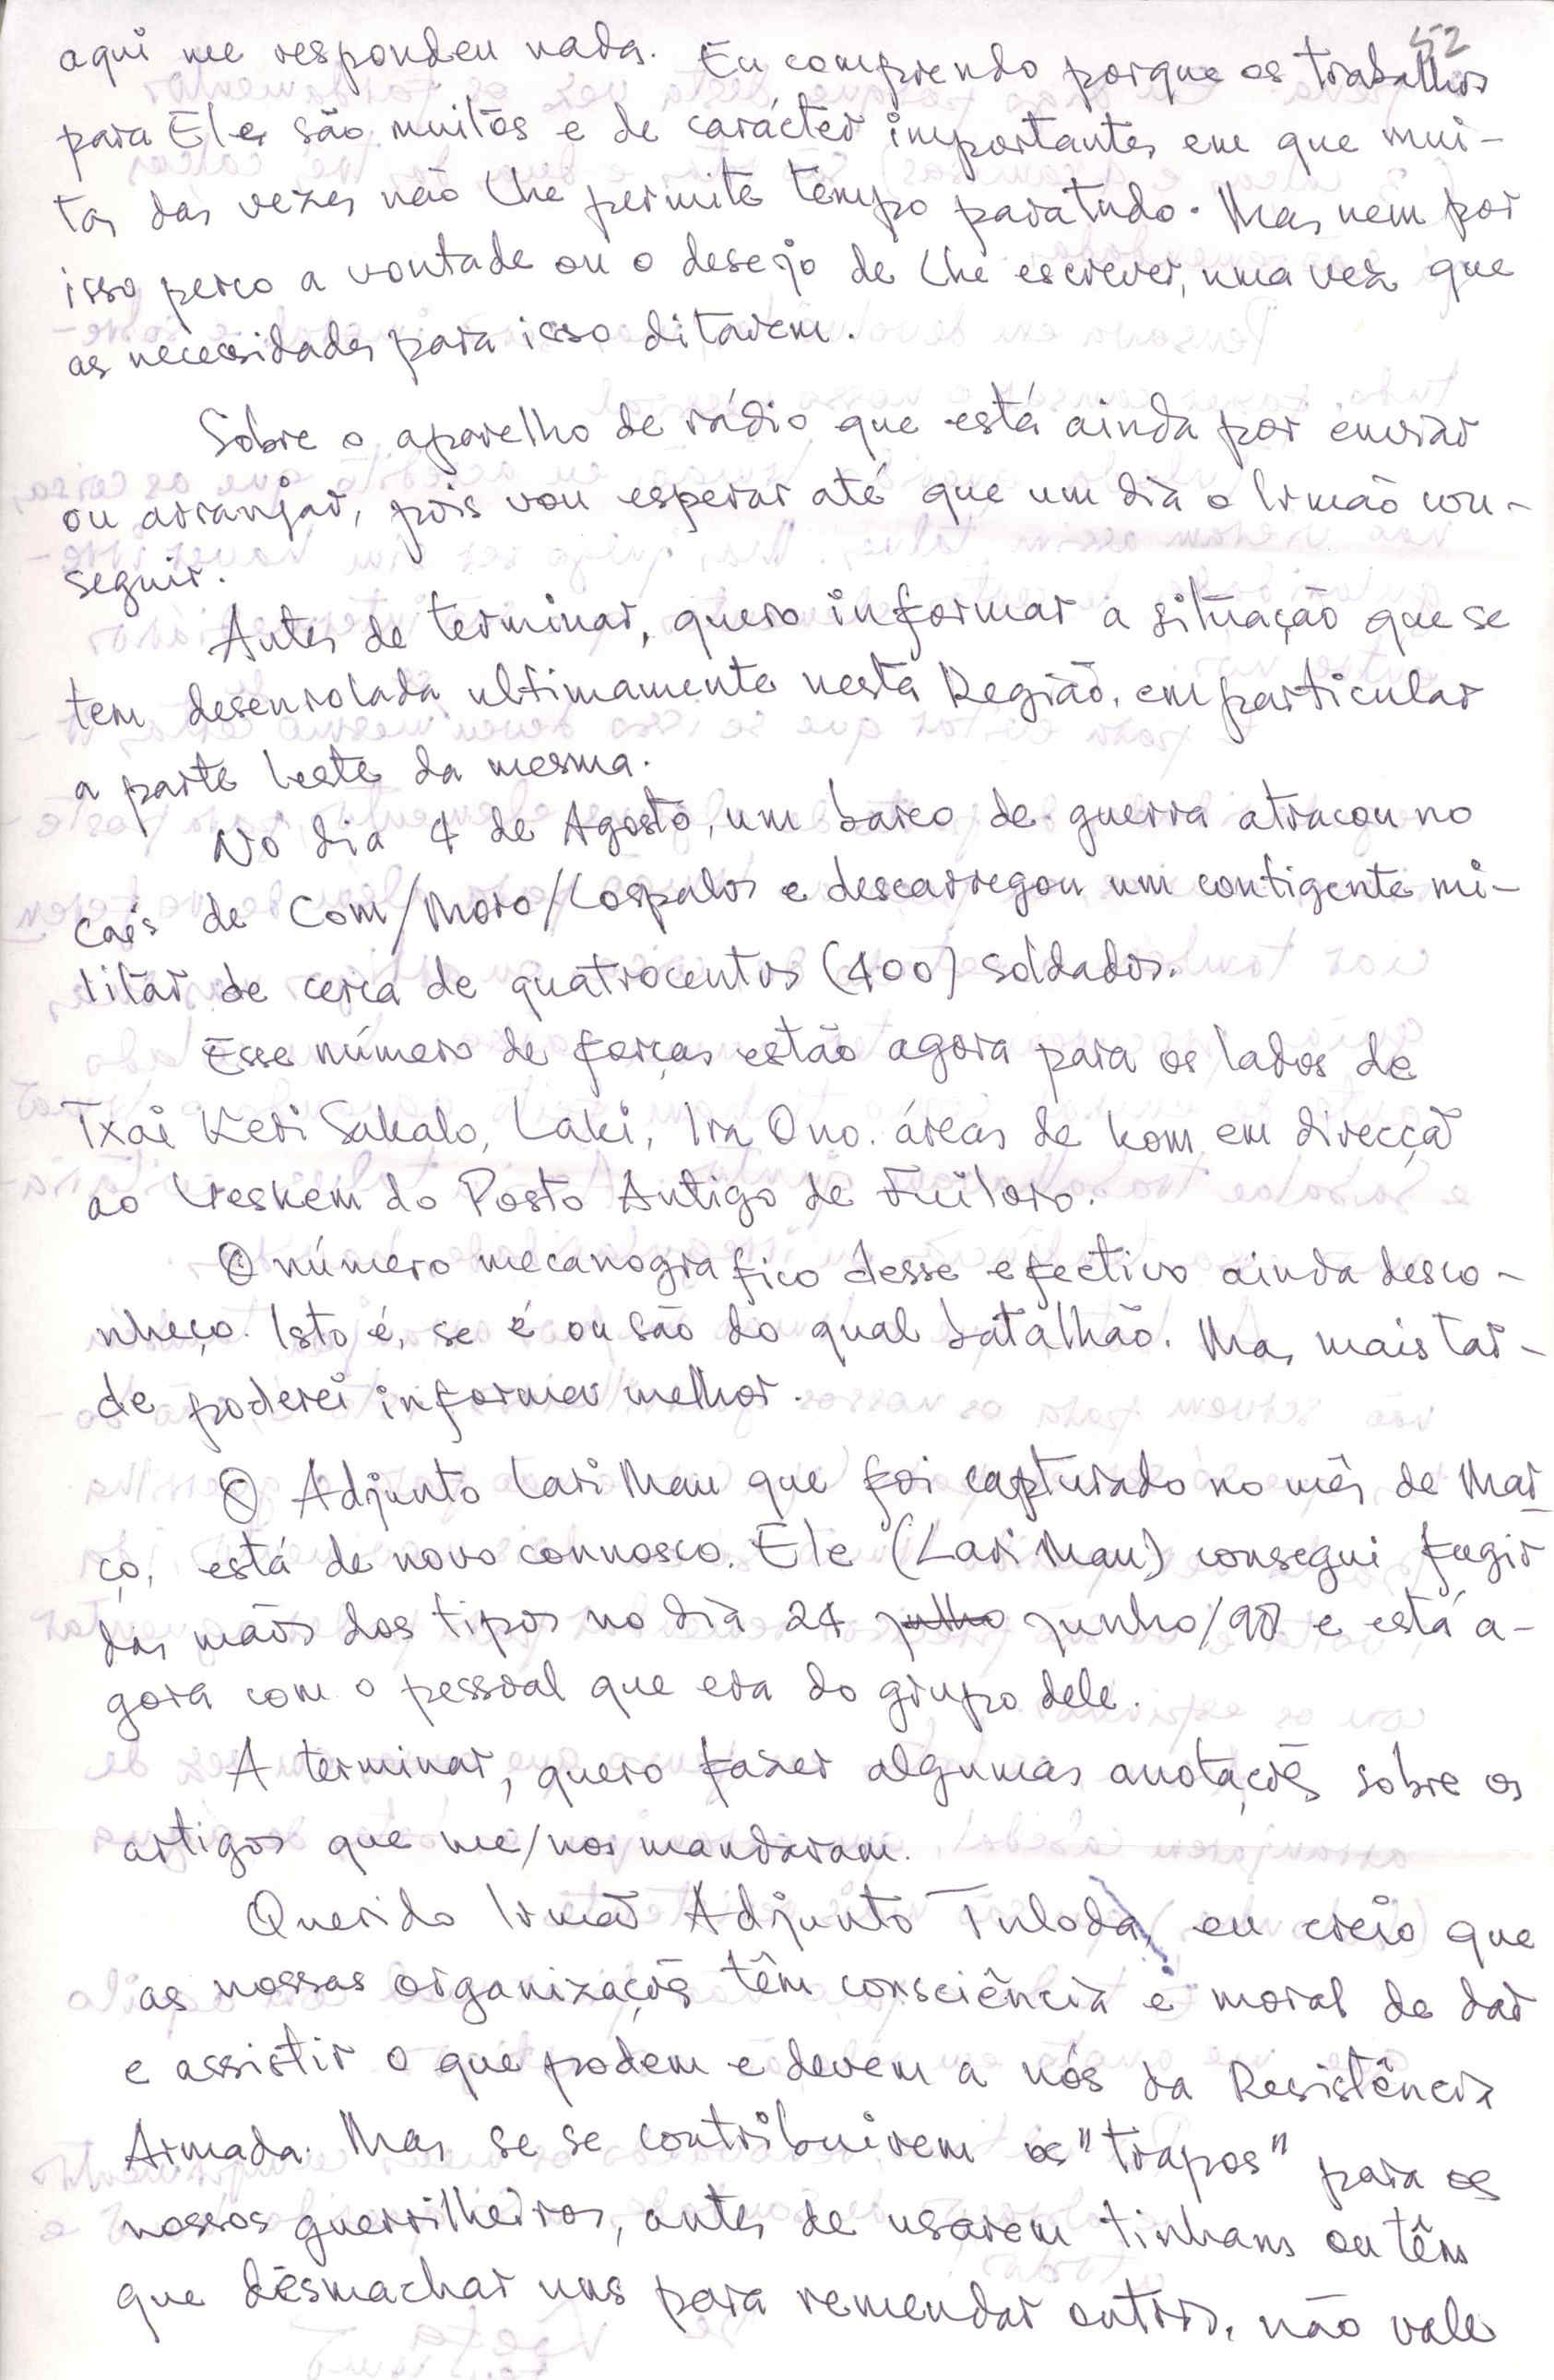 52
aqui me respondeu nada. Eu comprendo porque os trabalhos
para Ele são muitos e de carácter importantes em que mui-
tas das vezes não lhe permite tempo para tudo. Mas nem por
isso perco a vontade ou o desejo de lhe escrever, uma vez que
as necessidades para isso ditarem.
Sobre o aparelho de rádio que está ainda por enviar
ou arranjar, pois vou esperar até que um dia o Irmão con-
seguir.
Antes de terminar, quero informar a situação que se
tem desenrolada ultimamente nesta Região, em particular
a parte leste da mesma.
No dia 4 de Agosto, um barco de guerra atracou no
cais de Com/Moro/Lospalos e descarregou um contigente mi-
litar de cerca de quatrocentos (400) soldados.
Esse número de forças estão agora para os lados de
Txai Keri Sakalo, Laki, Ira Ono. áreas de kom em direcção
ao do Posto Antigo de Fuiloro.
O número mecanografico desse efectivo ainda desco-
nheço. Isto é, se é ou são do qual batalhão. Mas, mais tar-
de poderei informar melhor.
O Adjunto Lari Mau que foi capturado no mês de Mar-
ço, está de novo connosco. Ele (Lari Mau) consegui fugir
das mãos dos tipos no dia 24 julho junho/98 e está a-
gora com o pessoal que era do grupo dele.
A terminar, quero fazer algumas anotações sobre os
artigos que me/nos mandaram.
Querido Irmão Adjunto Tuloda, eu creio que
as nossas organizações têm consciência e moral de dar
e assistir o que podem e devem a nós da Resistência
Armada. Mas se se contribuirem os "trapos" para os
nossos guerrilheiros, antes de usarem tinham ou têm
que desmachar uns para remendar outros, não vale